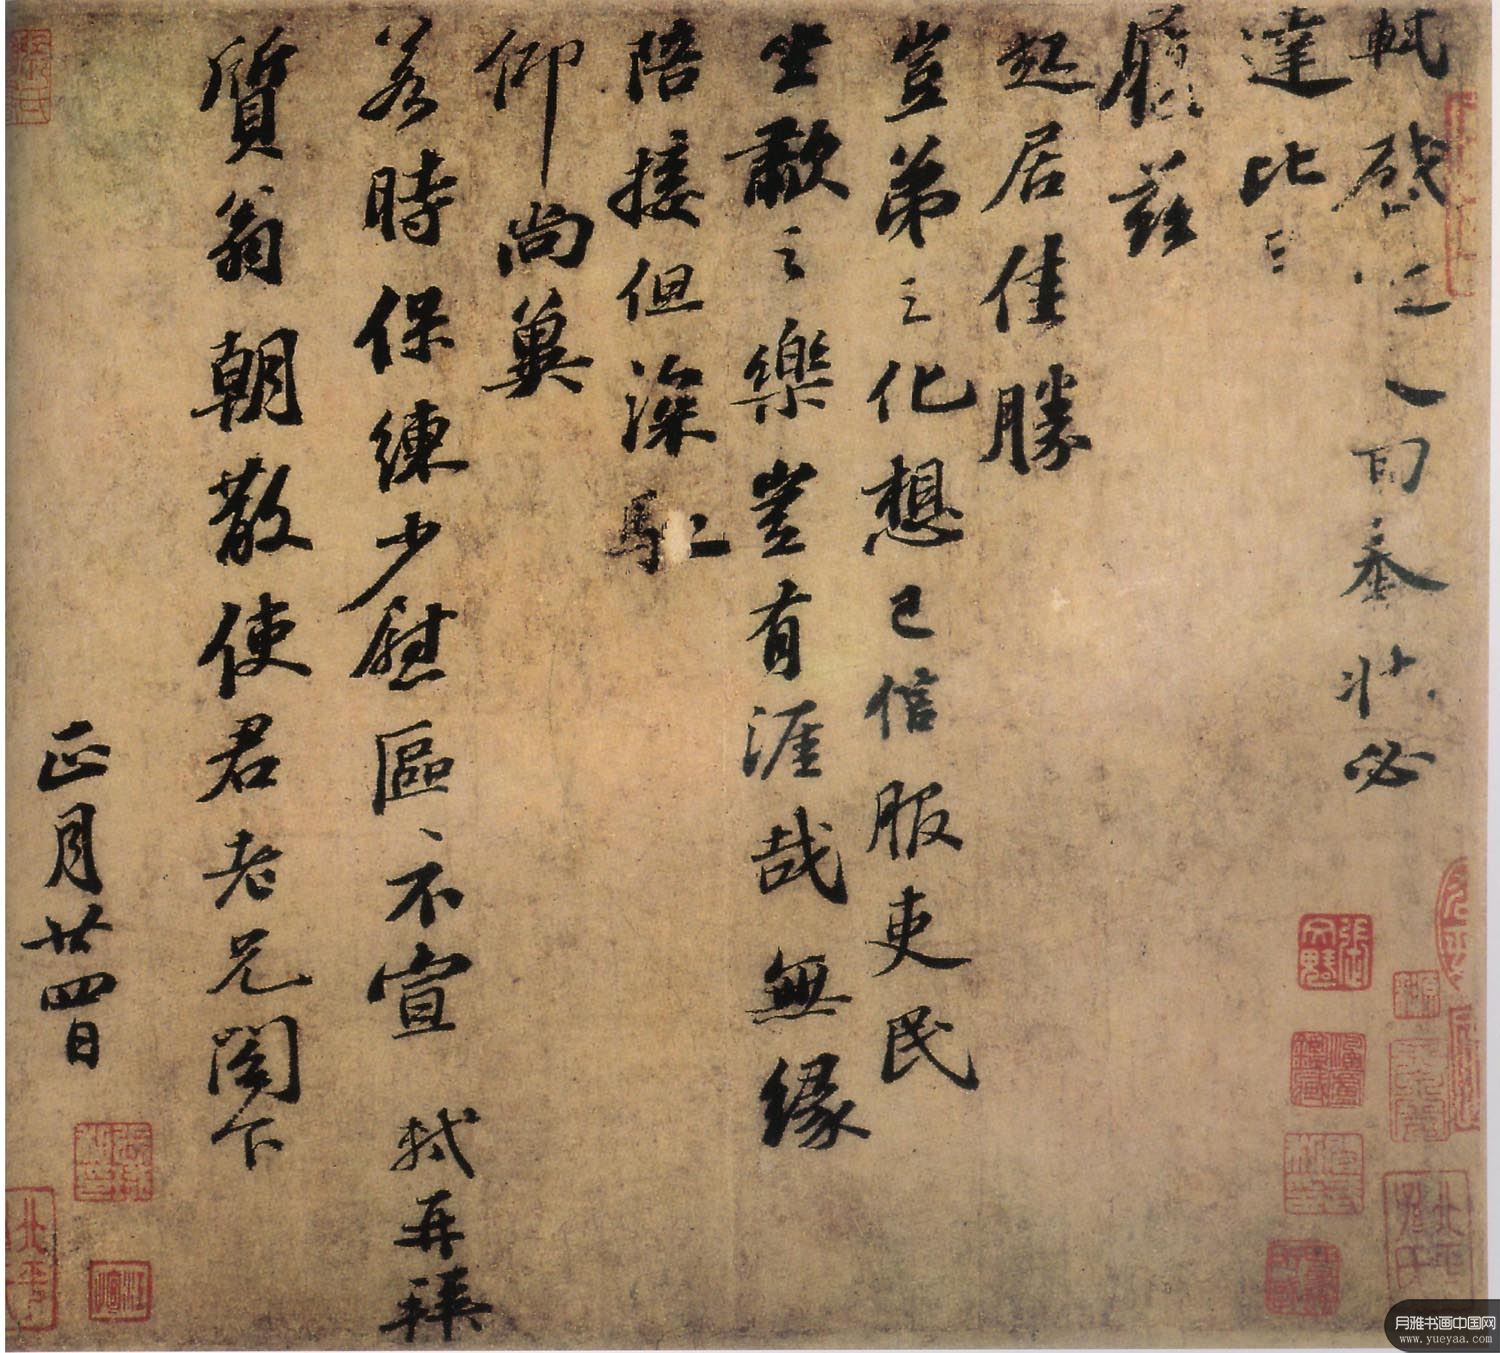 軾啓人回奉狀必
達比
履茲
起居佳勝
豈弟之化想已信服吏民
坐歗之樂豈有涯哉無緣
陪接但深馳
仰尚冀
若時保練少慰區、不宣 軾再拜
質翁朝散使君老兄閤下
正月廿四日
月雅书画中国网
www.yueyaa.com